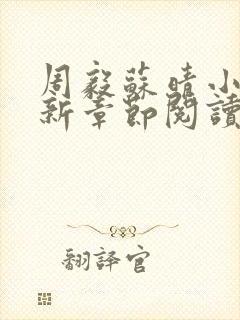 周毅蘇晴小
新章節閱讀
翻譯官